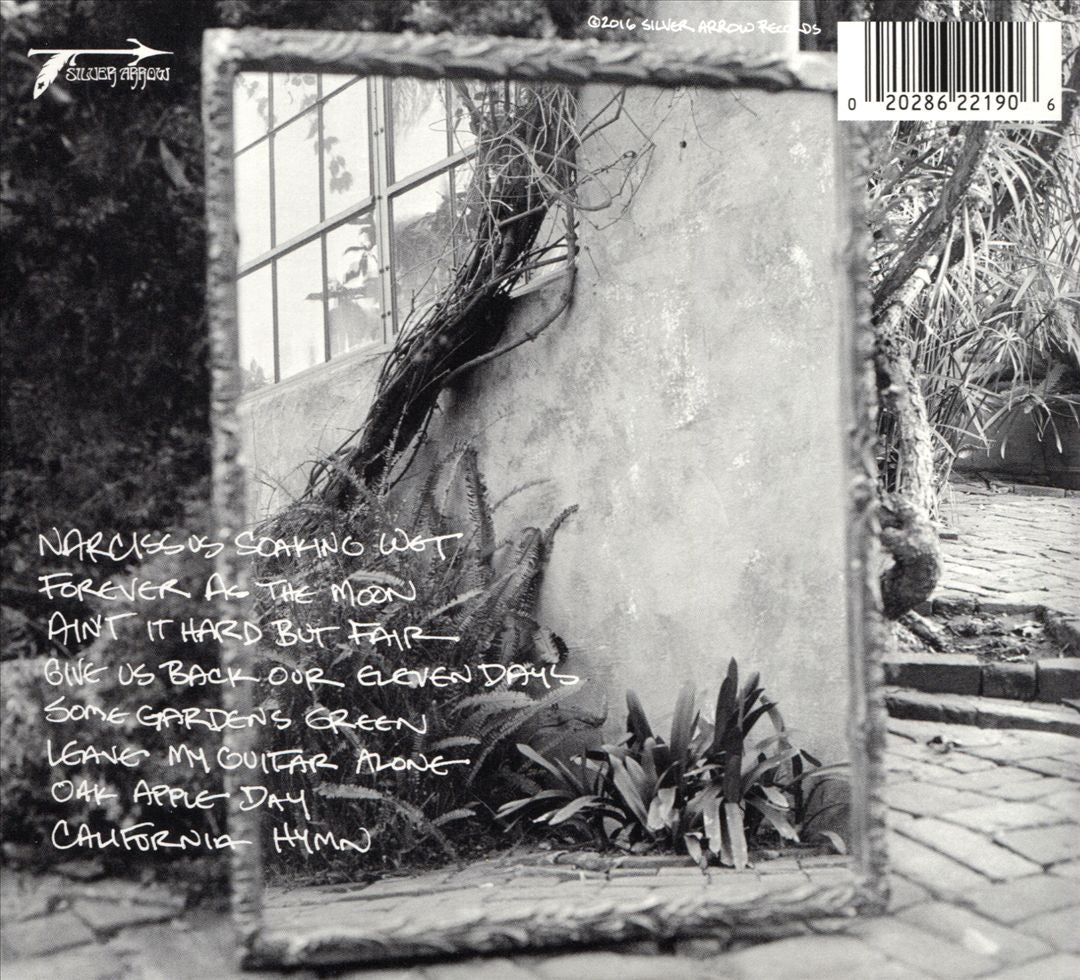 ©2016 SILVER ARROW RECORDS
SILVER ARROW
0 20286 22190 6
NARCISSUS SOAKING WET
FOREVER AS THE MOON
AIN'T IT HARD BUT FAIR
GIVE US BACK OUR ELEVEN DAYS
SOME GARDENS GREEN
LEAVE MY GUITAR ALONE
OAK APPLE DAY
CALIFORNIA HYMN